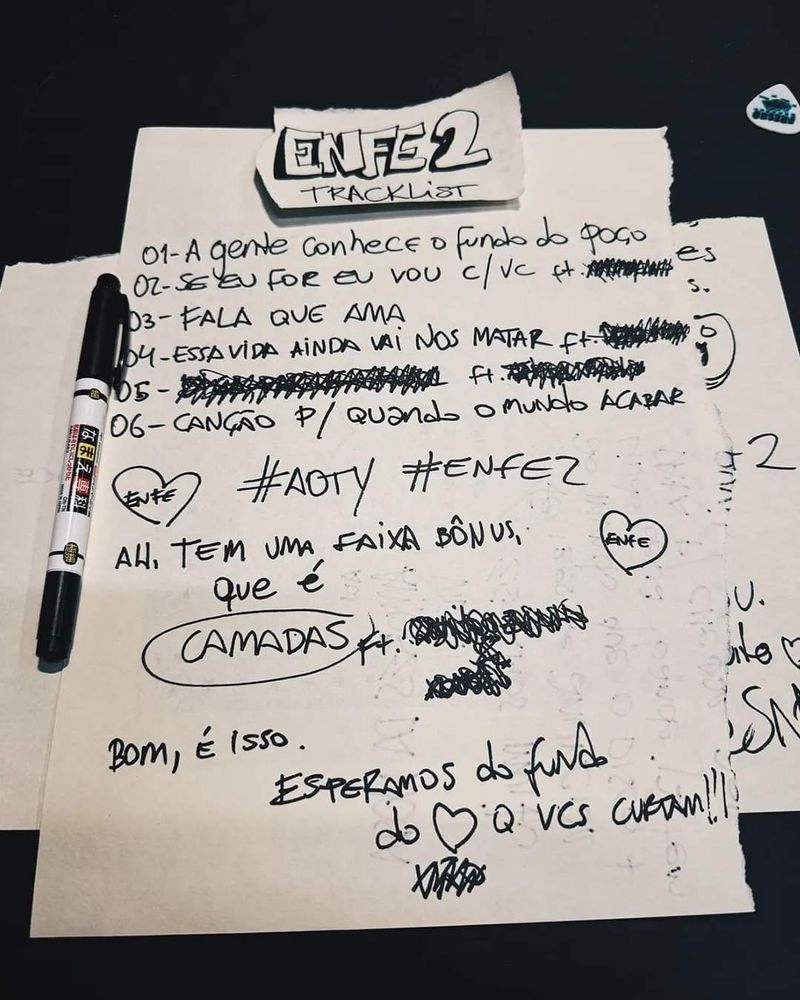 ENFE2
TRACKLIST
01-A gente conhece o fundo do poço
02-SE EU FOR EU VOU C/VC ft.
03-FALA QUE AMA
04-ESSA VIDA AINDA VAI NOS MATAR ft.
05- ft.
06-CANÇÃO P/ QUANDO O MUNDO ACABAR
#AOTY #ENFE2
ENFE
AH, TEM UMA FAIXA BÔNUS,
ENFE
que é
CAMADAS ft.
BOM, É ISSO.
ESPERAMOS do fundo
do ♡ Q VCS CURTAM!!!
es
s.
2
U.
なまえ